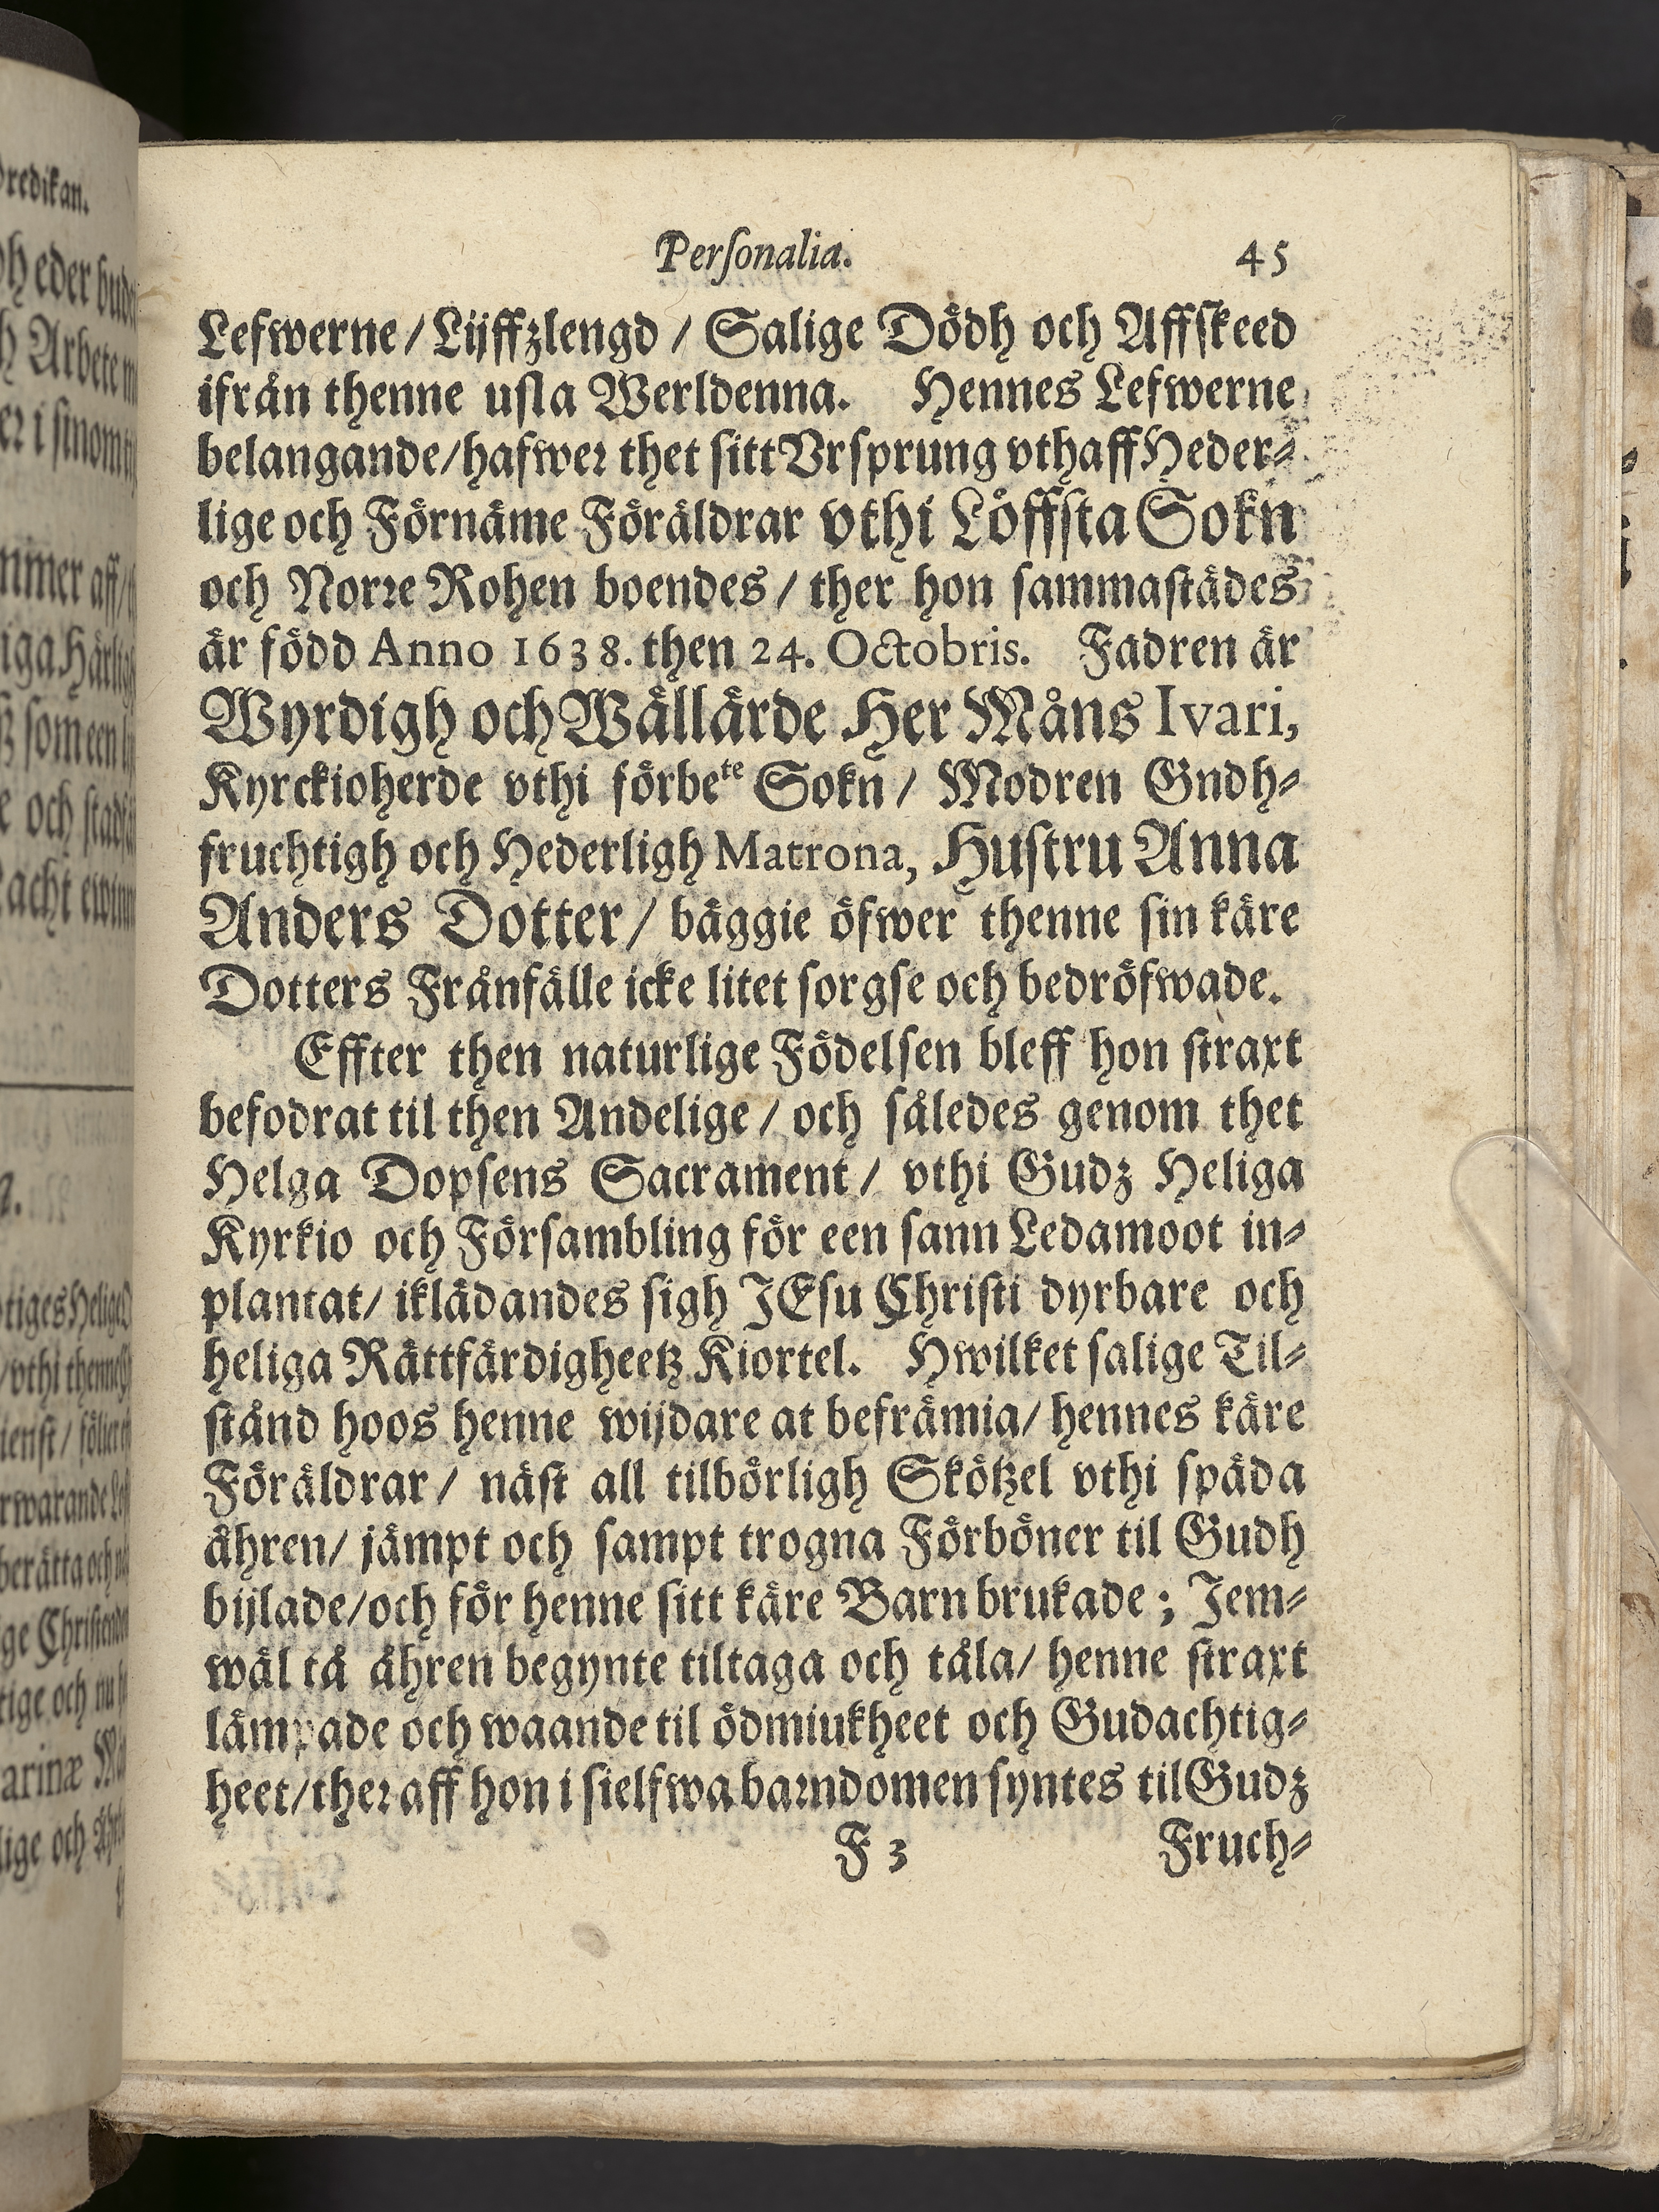 Personalia. 45
Lefwerne / Lijffzlengd / Salige Dödh och Affskeed
ifrån thenne usla Werldenna. Hennes Lefwerne
belangande/hafwer thet sitt Vrsprung vthaff Heder-
lige och Förnäme Föräldrar vthi Löffsta Sokn
och Norre Rohen boendes / ther hon sammastädes
är född Anno 1638. then 24. Octobris. Fadren är
Wyrdigh och Wällärde Her Måns Ivari,
Kyrckioherde vthi förbete Sokn / Modren Gndh-
fruchtigh och Hederligh Matrona, Hustru Anna
Anders Dotter / bäggie öfwer thenne sin käre
Dotters Frånfälle icke litet sorgse och bedröfwade.
Effter then naturlige Födelsen bleff hon straxt
befodrat til then Andelige / och således genom thet
Helga Dopsens Sacrament / vthi Gudz Heliga
Kyrkio och Försambling för een sann Ledamoot in-
plantat/ iklädandes sigh JEsu Christi dyrbare och
heliga Rättfärdigheetz Kiortel. Hwilket salige Til-
stånd hoos henne wijdare at befrämia/ hennes käre
Föräldrar / näst all tilbörligh Skötzel vthi späda
åhren/ jämpt och sampt trogna Förböner til Gudh
bijlade/och för henne sitt käre Barn brukade ; Jem-
wäl tå åhren begynte tiltaga och tåla/ henne straxt
lämpade och waande til ödmiukheet och Gudachtig-
heet/ther aff hon i sielfwa barndomen syntes til Gudz
F 3 Fruch-